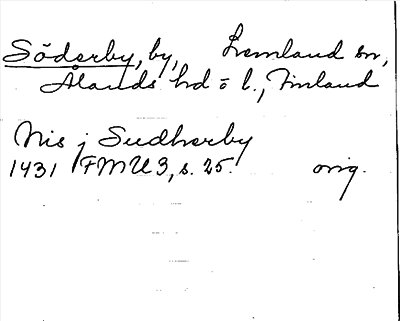 Söderby, by, Lemland sn,
Ålands hd o l., Finland
Nis j Sudherby
1431 FMU 3, s. 25. orig.